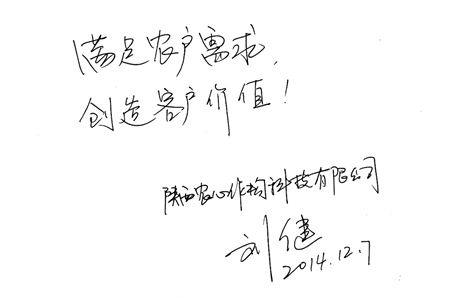 满足农户需求,
创造客户价值!
陕西农心作物科技有限公司
刘健
2014.12.7